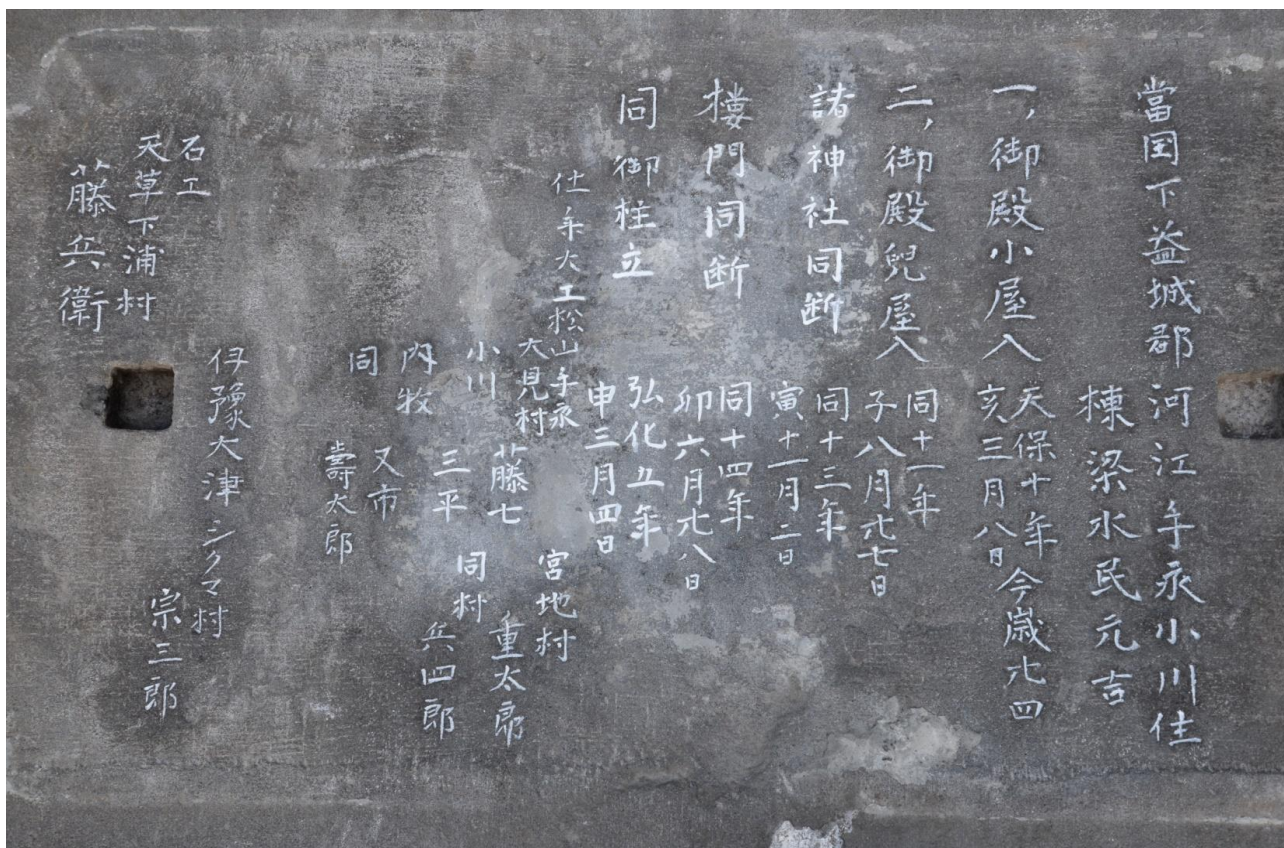 當国下益城郡河江手永小川住
棟梁水民元吉
一,御殿小屋入
天保十年今歳廿四
亥三月八日
二,御殿兒屋入
同十一年
子八月廿七日
諸神社同断
同十三年
寅十一月二日
楼門同断
同十四年
卯六月廿八日
同御柱立
弘化五年
申三月四日
仕手大工松山手永
宮地村
大見村
藤七
重太郎
小川
三平
同村
兵四郎
内牧
又市
同
壽太郎
石工
天草下浦村
藤兵衛
伊豫大津シクマ村
宗三郎